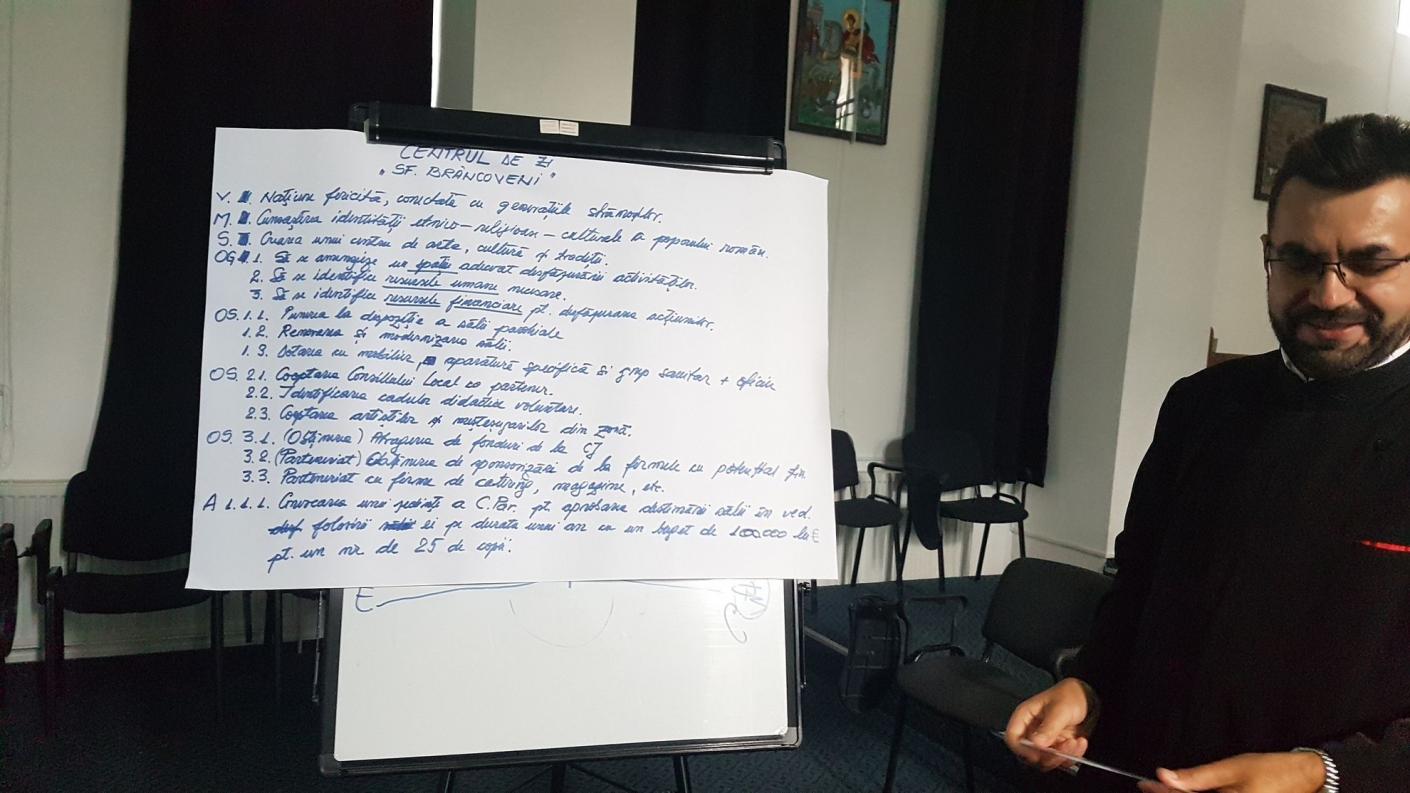 CENTRUL DE ZI
"SF. BRÂNCOVENI"
V. Națiune fericită, conectată cu generațiile strămoșilor.
M. Cunoașterea identității etnico-religioase-culturale a poporului român.
S. Crearea unui centru de arte, cultură și tradiții.
OG 1. Să se amenajeze un spațiu adecvat desfășurării activităților.
2. Să se identifice resursele umane necesare.
3. Să se identifice resursele financiare pt. desfășurarea acțiunilor.
OS. 1.1. Punerea la dispoziție a sălii parohiale
1.2. Renovarea și modernizarea sălii.
1.3. Dotarea cu mobilier, aparatură specifică și grup sanitar + oficiu
OS. 2.1. Cooptarea Consiliului Local ca partener.
2.2. Identificarea cadrelor didactice voluntari.
2.3. Cooptarea artiștilor și meșteșugarilor din zonă.
OS. 3.1. (Obținerea) Atragerea de fonduri de la CJ
3.2. (Parteneriat) Obținerea de sponsorizări de la firmele cu potențial fin.
3.3. Parteneriat cu firme de catering, magazine, etc.
A 1.1.1. Convocarea unei ședințe a C.Par. pt. aprobarea destinării sălii în ved.
folosirii ei pe durata unui an cu un buget de 100.000 lei
pt. un nr. de 25 de copii.
E